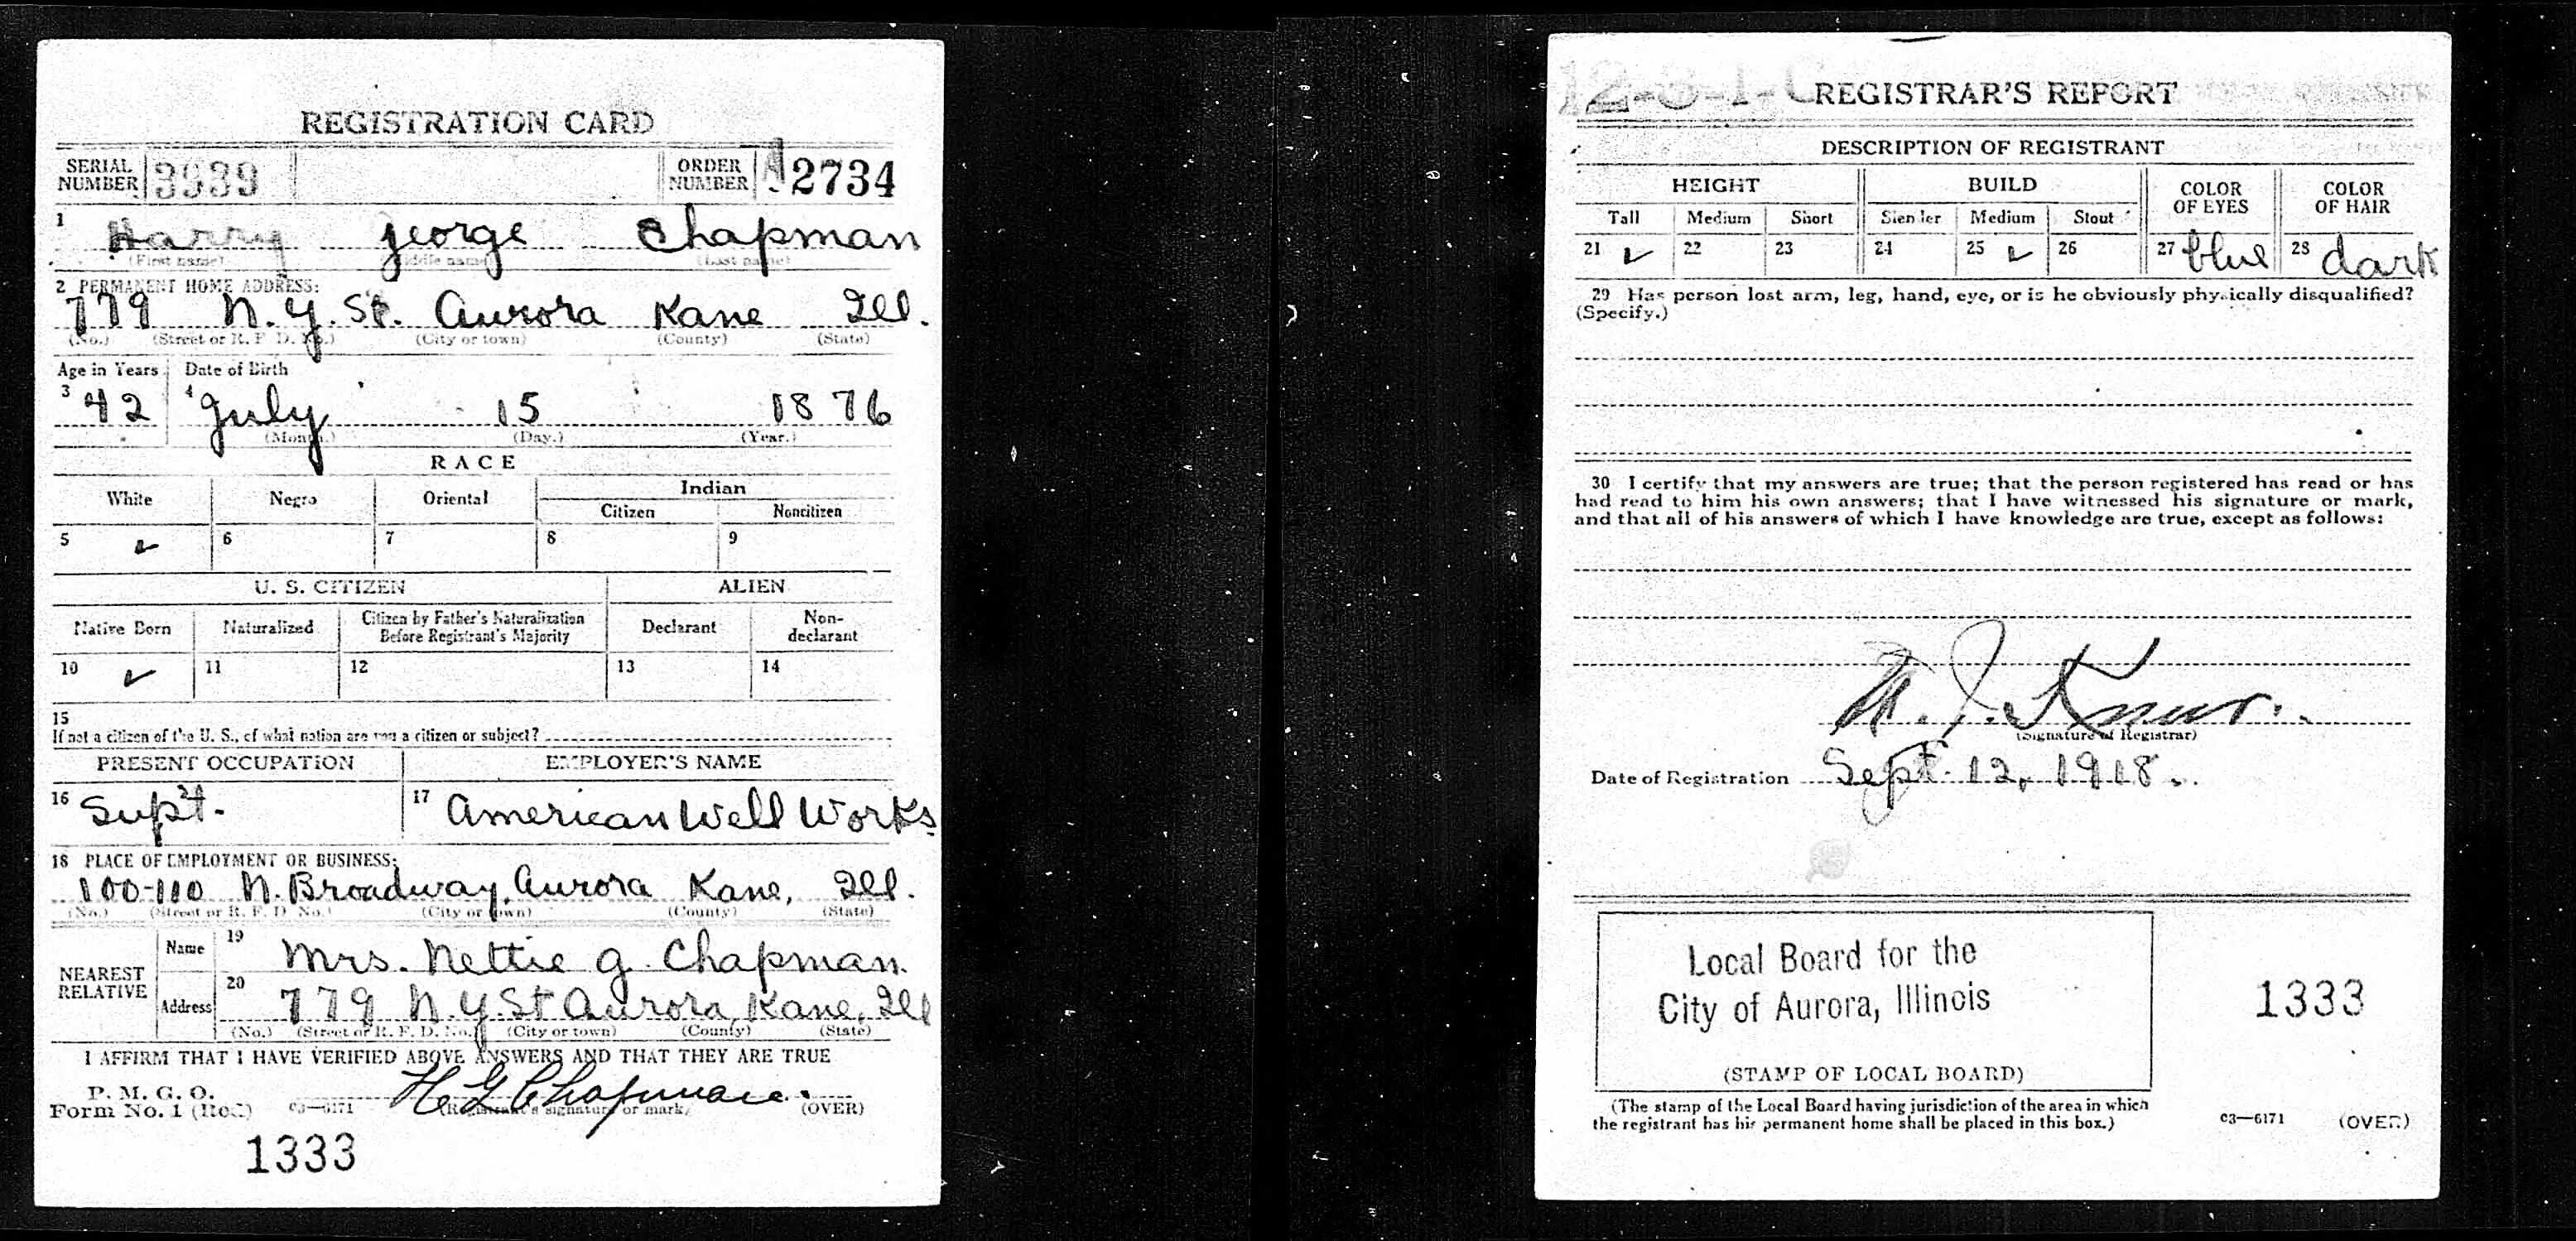 REGISTRATION CARD
SERIAL NUMBER 3939 ORDER NUMBER A2734
1 Harry George Chapman
(First name) (Middle name) (Last name)
2 PERMANENT HOME ADDRESS:
779 N.Y. St. Aurora Kane Ill.
(No.) (Street or R. F. D. No.) (City or town) (County) (State)
Age in Years Date of Birth
3 42 4 July 15 1876
(Month.) (Day.) (Year.)
RACE
White Negro Oriental Indian
Citizen Noncitizen
5 ✓ 6 7 8 9
U. S. CITIZEN ALIEN
Native Born Naturalized Citizen by Father's Naturalization Before Registrant's Majority Declarant Non-declarant
10 ✓ 11 12 13 14
15
If not a citizen of the U. S., of what nation are you a citizen or subject?
PRESENT OCCUPATION EMPLOYER'S NAME
16 Supt. 17 American Well Works
18 PLACE OF EMPLOYMENT OR BUSINESS:
100-110 N. Broadway, Aurora Kane, Ill.
(No.) (Street or R. F. D. No.) (City or town) (County) (State)
NEAREST RELATIVE
Name 19 Mrs. Nettie G. Chapman.
Address 20 779 N.Y. St Aurora, Kane, Ill
(No.) (Street or R. F. D. No.) (City or town) (County) (State)
I AFFIRM THAT I HAVE VERIFIED ABOVE ANSWERS AND THAT THEY ARE TRUE
P. M. G. O.
Form No. 1 (Red) 03—6171 H G Chapman. (OVER)
(Registrant's signature or mark)
1333
REGISTRAR'S REPORT
DESCRIPTION OF REGISTRANT
HEIGHT BUILD COLOR OF EYES COLOR OF HAIR
Tall Medium Short Slender Medium Stout
21 ✓ 22 23 24 25 ✓ 26 27 blue 28 dark
29 Has person lost arm, leg, hand, eye, or is he obviously physically disqualified?
(Specify.)
30 I certify that my answers are true; that the person registered has read or has
had read to him his own answers; that I have witnessed his signature or mark,
and that all of his answers of which I have knowledge are true, except as follows:
(Signature of Registrar)
Date of Registration Sept. 12, 1918.
Local Board for the
City of Aurora, Illinois
1333
(STAMP OF LOCAL BOARD)
(The stamp of the Local Board having jurisdiction of the area in which
the registrant has his permanent home shall be placed in this box.)
03—6171 (OVER)